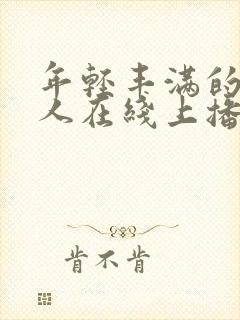 年轻丰满的
人在线上播
肯不肯